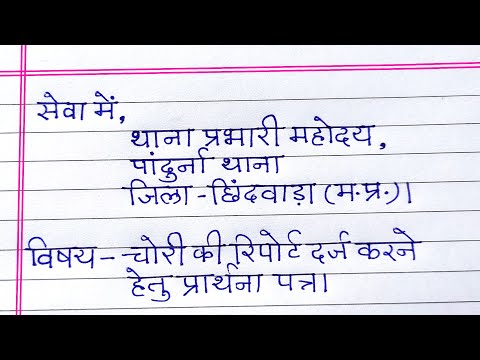 सेवा में,
थाना प्रभारी महोदय,
पांदुर्ना थाना
जिला - छिंदवाड़ा (म.प्र.)।
विषय - चोरी की रिपोर्ट दर्ज करने
हेतु प्रार्थना पत्र।